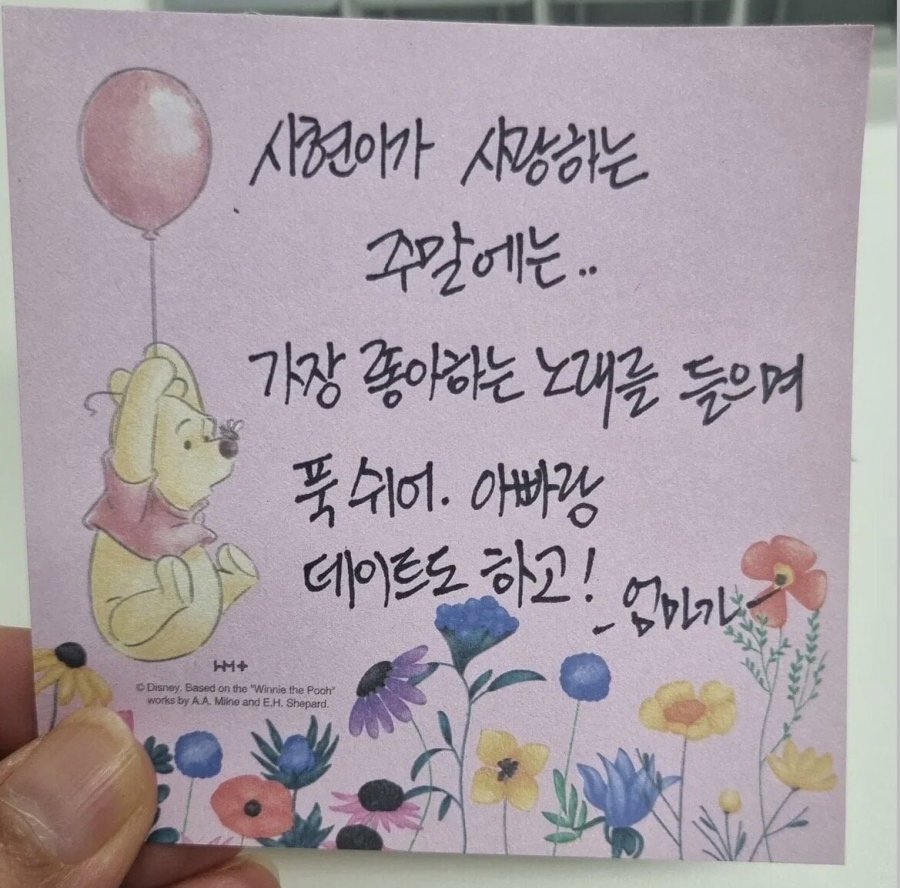 시현이가 사랑하는
주말에는..
가장 좋아하는 노래를 들으며
푹 쉬어. 아빠랑
데이트도 하고!
- 엄마가 -
© Disney. Based on the "Winnie the Pooh"
works by A.A. Milne and E.H. Shepard.